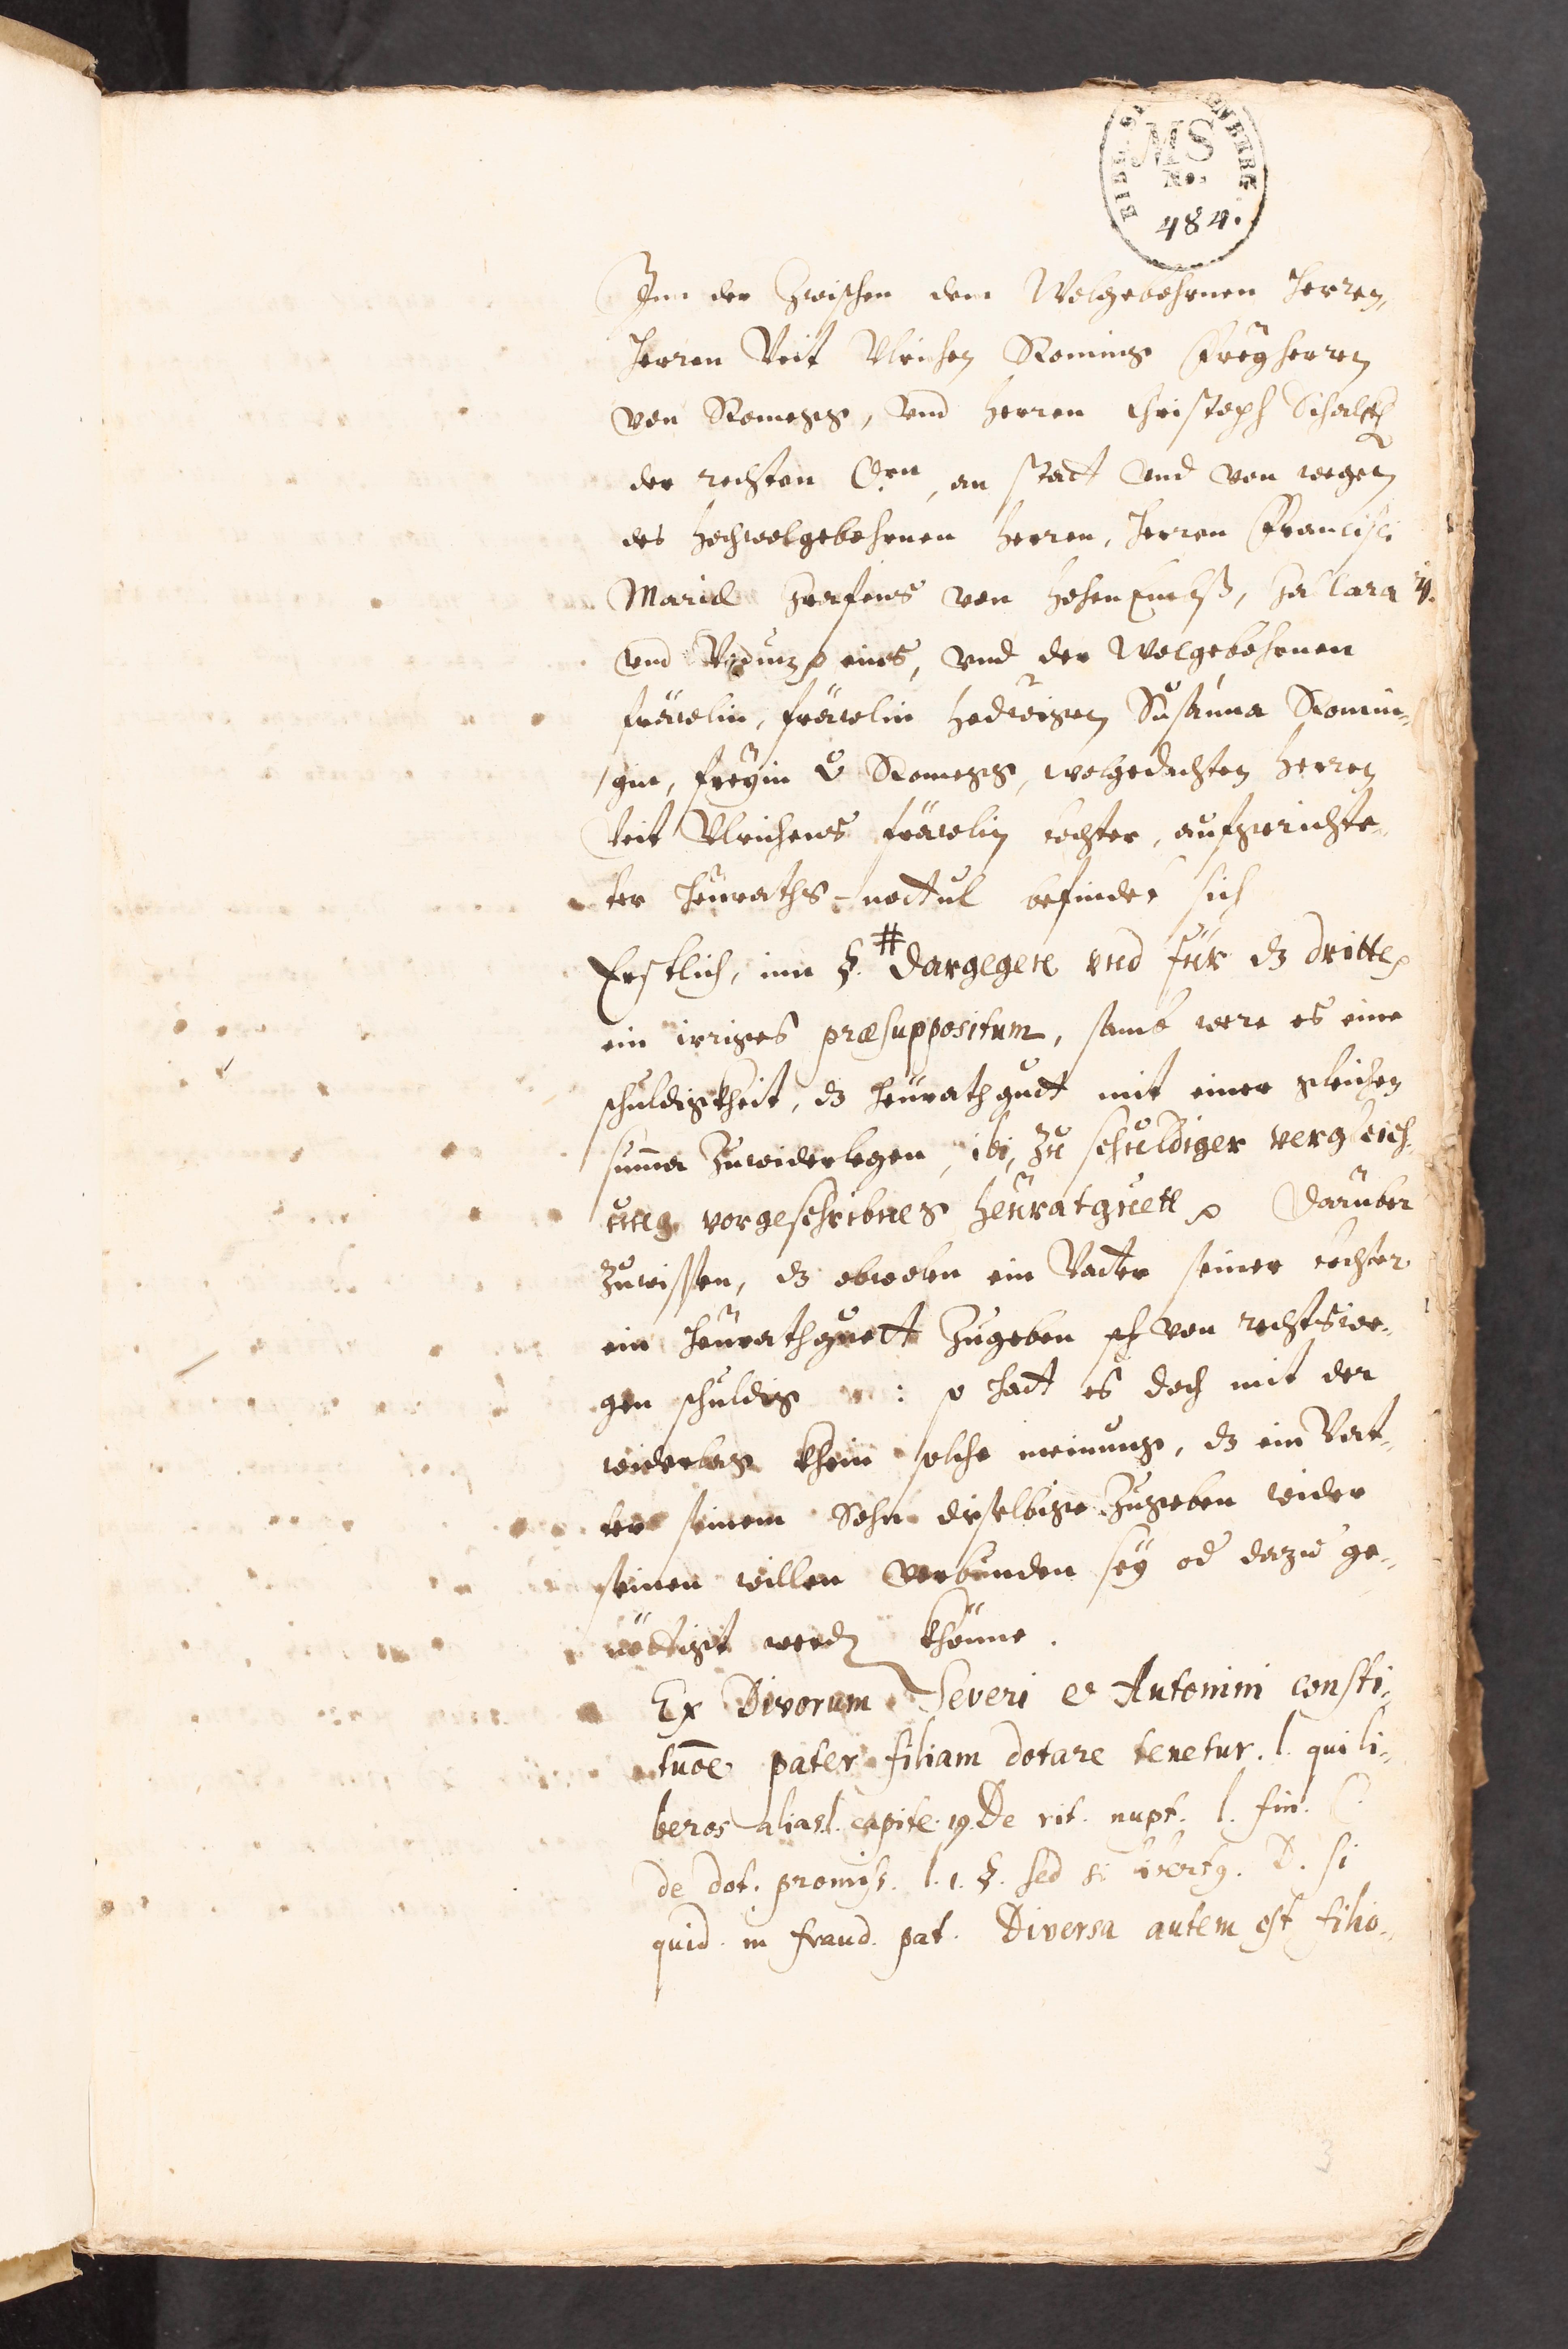 MS
No.
484.
Inn der zwischen dem Wolgebohrnen Herren,
Herren Veit Ulrichen Romings Freyherren
von Romegg, vnd Herren Christoph Schalkh
der rechten D.ren, an statt vnd von wegen
des hochwolgebohrnen Herren, Herren Francisci
Mariæ Grafens von Hohen Embß, Gallara
vnd Vaduz eines, vnd der Wolgebohrnen
fräwlin, fräwlin Hedwigen Susanna Romin-
gin, freyin v Romegg, wolgedachten Herren
Veit Ulrichens fräwlin tochter, aufgerichte-
ter Heuraths-nottul befindet sich
Erstlich, inn §. # Dargegen vnd für dz dritte
ein irriges præsuppositum, samb were es eine
schuldigkheit, dz Heurathguett mit einer gleichen
summa zuwiderlegen, ibi, zu schuldiger vergleich-
ung vorgeschribnes heuratguett Darüber
zuwissen, dz obwolen ein Vatter seiner tochter
ein Heurathguett zugeben von rechtswe-
gen schuldig : so hatt es doch mit der
widerlag khein solche meinung, dz ein Vat-
ter seinem Sohn dieselbige zugeben wider
seinen willen verbunden sey od dazu ge-
nöttigt werdz khönne.
Ex Divorum Severi & Antonini consti-
tuõe pater filiam dotare tenetur. l. qui li-
beros alias l. capite. 19. De rit. nupt. l. fin. C.
de dot. promiss. l. 1. §. sed si libertg. D. si
quid in fraud. pat. Diversa autem est filio-
3